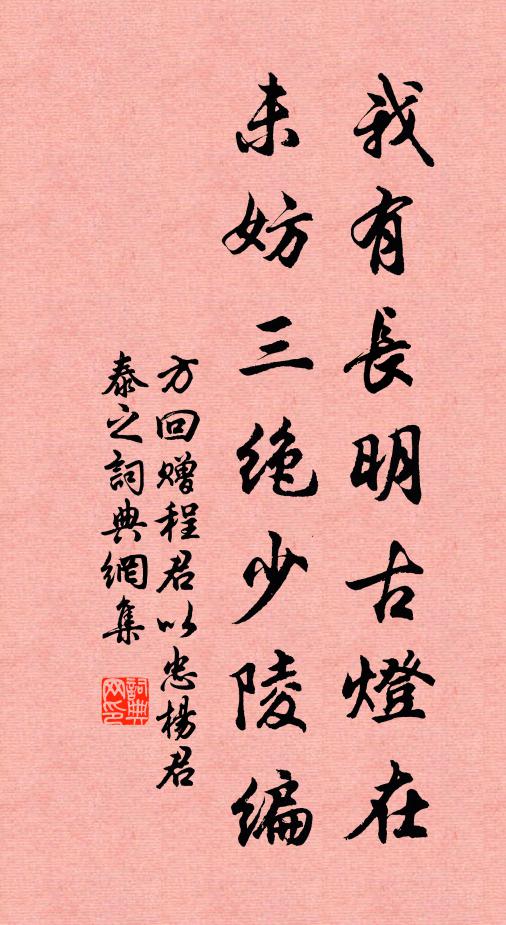 我有長明古燈在
未妨三绝少陵編
方回赠程君以忠楊君
泰之詞典網集
詞典网印